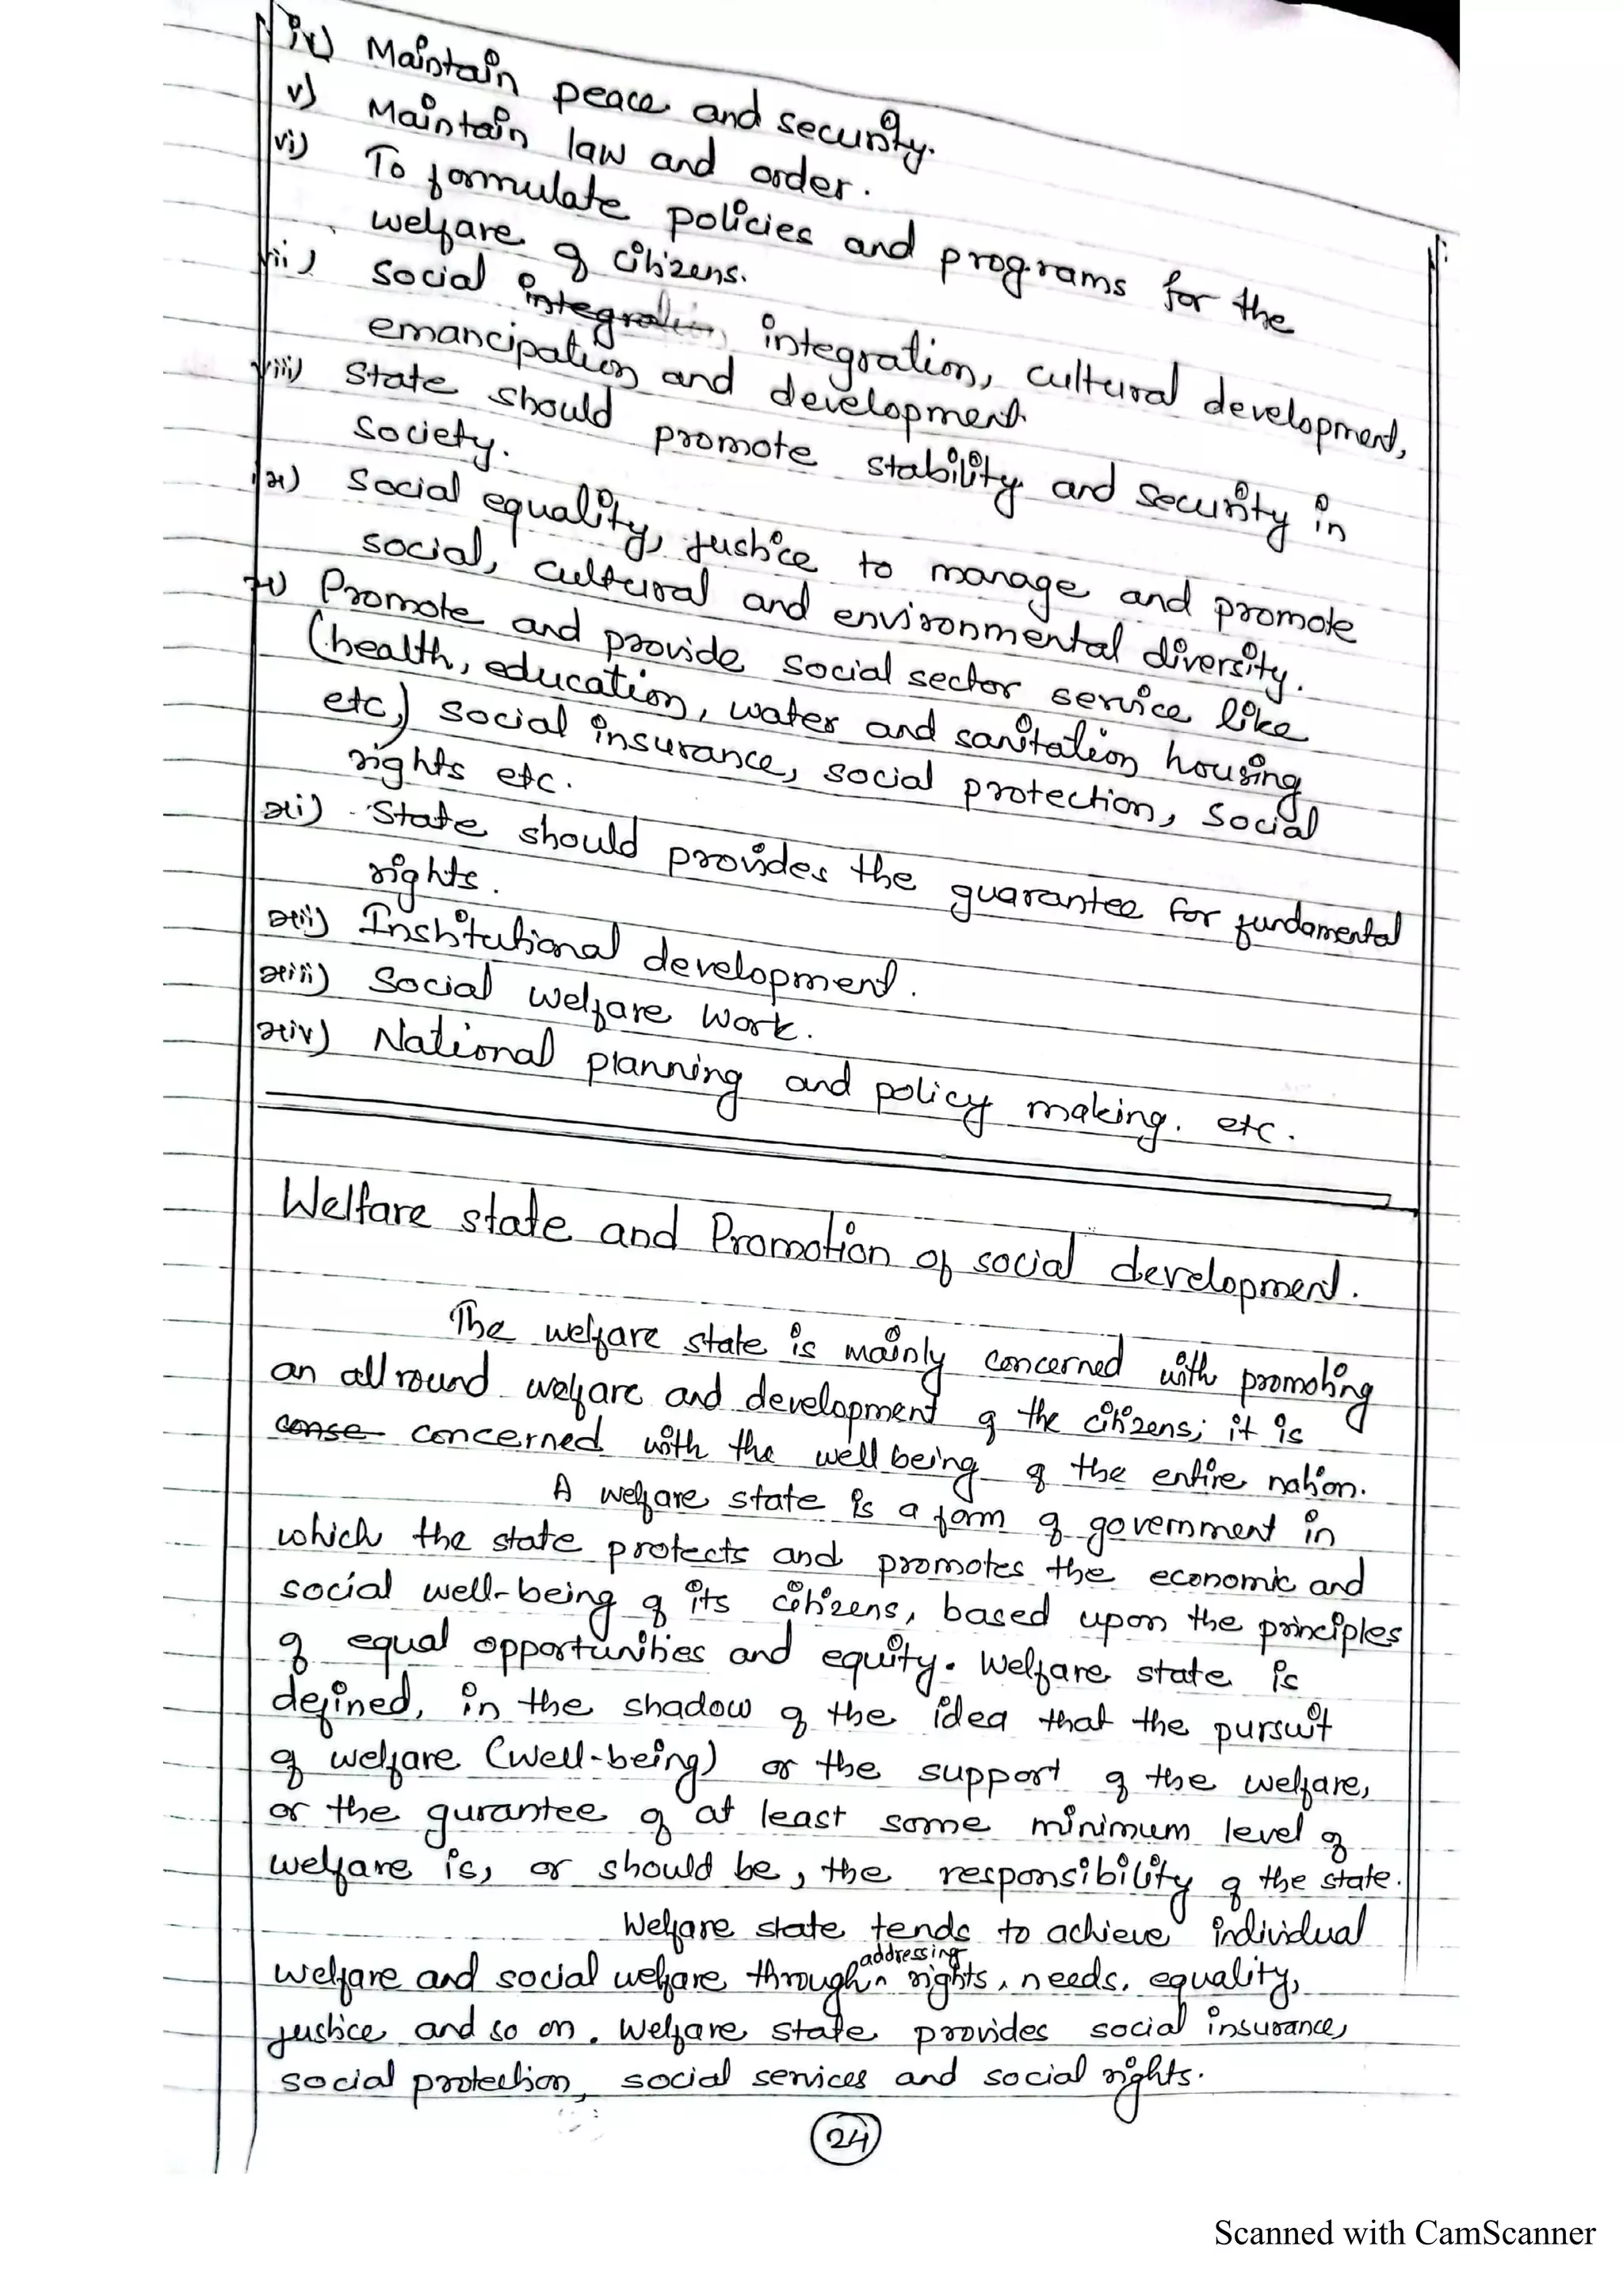 iv) Maintain peace and security.
v) Maintain law and order.
vi) To formulate policies and programs for the
welfare of citizens.
vii) social integration integration, cultural development,
emancipation and development
viii) State should promote stability and security in
society.
ix) Social equality, justice to manage and promote
social, cultural and environmental diversity.
x) Promote and provide social sector service like
(health, education, water and sanitation housing
etc.) social insurance, social protection, social
rights etc.
xi) State should provides the guarantee for fundamental
rights.
xii) Institutional development.
xiii) Social welfare work.
xiv) National planning and policy making. etc.
Welfare state and Promotion of social development.
The welfare state is mainly concerned with promoting
an all round welfare and development of the citizens; it is
conse concerned with the well being of the entire nation.
A welfare state is a form of government in
which the state protects and promotes the economic and
social well-being of its citizens, based upon the principles
of equal opportunities and equity. Welfare state is
defined, in the shadow of the idea that the pursuit
of welfare (well-being) or the support of the welfare,
or the gurantee of at least some minimum level of
welfare is, or should be, the responsibility of the state.
Welfare state tends to achieve individual
welfare and social welfare through addressing rights, needs, equality,
justice and so on. Welfare state provides social insurance,
social protection, social services and social rights.
24
Scanned with CamScanner